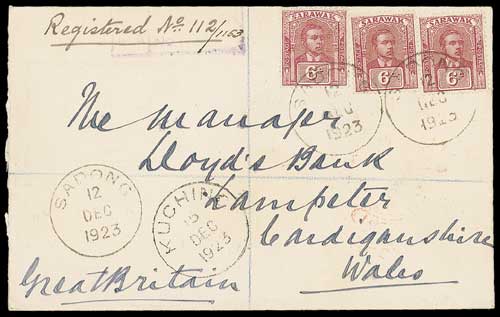 Registered No. 112/1153
SARAWAK SARAWAK SARAWAK
POSTAGE
6c 6c 6c
12
DEC
1923
12
DEC
1923
The Manager
Lloyd's Bank
Lampeter
Cardiganshire
Wales
Great Britain
SADONG
12
DEC
1923
KUCHING
DEC
1923